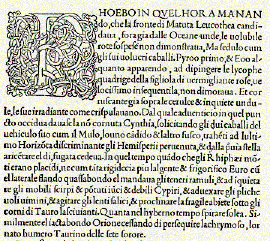 HOEBO IN QVEL HORA MANAN
do, che la fronte di Matuta Leucothea candi
daua, fora gia dalle Oceane unde, le uolubile
rote sospese non dimonstraua, Ma sedulo cum
gli sui uolucri caballi, Pyroo primo, & Eoo al
quanto apparendo, ad dipingere le lycophe
quadrige della figliola di uermigliante rose, ue
locissimo insequentila, non dimoraua. Et cor
ruscante gia sopra le cerulee & inquiete undu
le, le sue irradiante come crispulauano. Dal quale aduenticio in quel pun
cto occidua dauase la nõ cornuta Cynthia, solicitando gli dui caballi del
uehiculo suo cum il Mulo, lo uno cãdido & laltro fusco, trahẽti ad lulti-
mo Horizõta discriminante gli Hemisperii peruenuta, & dalla puia stella
a ricẽtare el di, fugata cedeua. In quel tempo quãdo che gli Rhiphæi mõ-
ti erano placidi, ne cum tanta rigidecia piu lalgente & frigorifico Euro cũ
el laterale flando quassabondo el mandaua gli teneri ramuli, & ad inquieta
re gli mobili scirpi & põtuti iũci & debili Cypiri, & aduexare gli pliche
uoli uimini, & agitare gli lenti salici, & proclinare la fragile abiete sotto gli
corni di Tauro lasciuianti. Quanta nel hyberno tempo spirare solea. Si-
milmente el iactabondo Orione cessando di persequire lachrymoso, lor-
nato humero Taurino delle sete sorore.